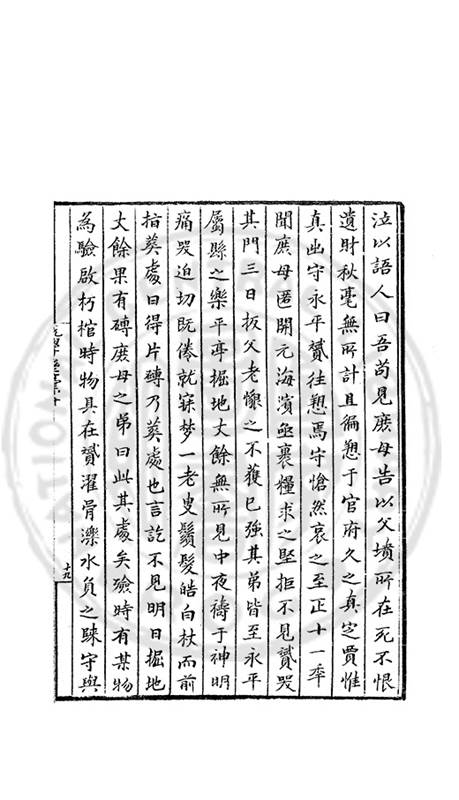 泣以語人曰吾苟見庶母告以父墳所在死不恨
遺財秋毫無所計且徧愬于官府久之真定賈惟
真出守永平贇往愬焉守愴然哀之至正十一年
聞庶母匿開元海濱亟裹糧求之堅拒不見贇哭
其門三日扳父老懷之不獲已強其弟皆至永平
屬縣之樂平亭掘地丈餘無所見中夜禱于神明
痛哭迫切既倦就寐夢一老叟鬚髮皓白杖而前
指葬處曰得片磚乃葬處也言訖不見明日掘地
丈餘果有磚庶母之弟曰此其處矣殮時有某物
為驗啟朽棺時物具在贇濯骨濼水負之睐守與
十九